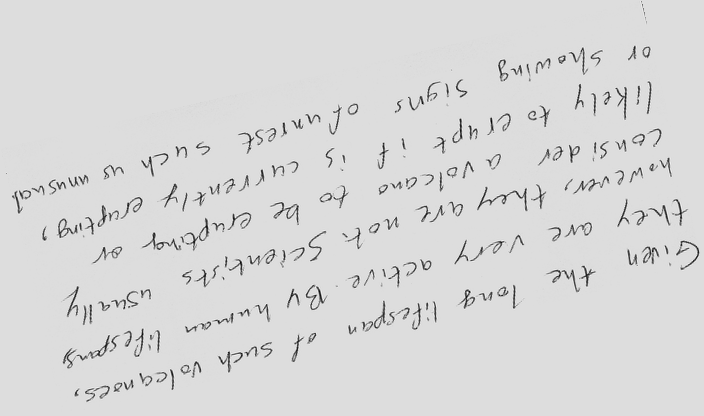 Given the long lifespan of such volcanoes,
they are very active. By human lifespans
however, they are not. Scientists usually
consider a volcano to be erupting or
likely to erupt if is currently erupting,
or showing signs of unrest such us unusual